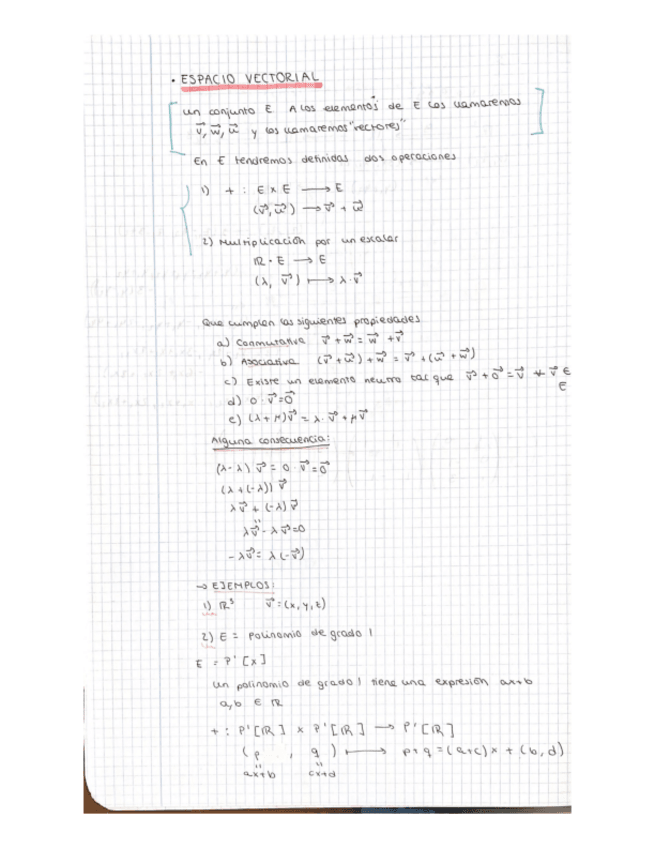 • ESPACIO VECTORIAL
un conjunto E A los elementos de E los llamaremos
v⃗, w⃗, u⃗ y los llamaremos "vectores"
En E tendremos definidas dos operaciones
1) + : E x E ⟶ E
(v⃗, u⃗) ⟶ v⃗ + u⃗
2) Multiplicación por un escalar
ℝ · E ⟶ E
(λ, v⃗) ⟼ λ · v⃗
Que cumplen las siguientes propiedades
a) Conmutativa v⃗ + w⃗ = w⃗ + v⃗
b) Asociativa (v⃗ + u⃗) + w⃗ = v⃗ + (u⃗ + w⃗)
c) Existe un elemento neutro tal que v⃗ + 0⃗ = v⃗ ∀ v⃗ ∈
E
d) 0 · v⃗ = 0⃗
e) (λ + μ) v⃗ = λ · v⃗ + μ v⃗
Alguna consecuencia:
(λ - λ) v⃗ = 0 · v⃗ = 0⃗
(λ + (-λ)) v⃗
λ v⃗ + (-λ) v⃗
"
λ v⃗ - λ v⃗ = 0
- λ v⃗ = λ (-v⃗)
→ EJEMPLOS:
1) ℝ³ v⃗ = (x, y, z)
2) E = Polinomio de grado 1
E = P' [x]
un polinomio de grado 1 tiene una expresión ax+b
a, b ∈ ℝ
+ : P' [ℝ] x P' [ℝ] ⟶ P' [ℝ]
(p , q) ⟼ p+q = (a+c) x + (b, d)
" "
ax+b cx+d